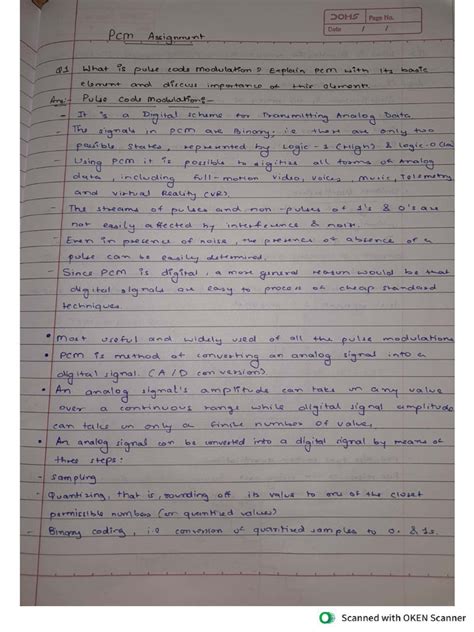 DOMS
Page No.
Date / /
PCM Assignment
Q1 What is pulse code modulation? Explain PCM with its basic
element and discuss importance of this element.
Ans:- Pulse Code Modulation:-
- It is a Digital scheme for Transmitting Analog Data
- The signals in PCM are Binary, i.e there are only two
possible States, represented by Logic-1 (High) & logic-0 (low)
- Using PCM it is possible to digitize all forms of Analog
data, including full-motion video, voices, music, telemetry
and virtual Reality (VR).
- The streams of pulses and non-pulses of 1's & 0's are
not easily affected by interference & noise.
- Even in presence of noise, the presence of absence of a
pulse can be easily determined.
- Since PCM is digital, a more general reason would be that
digital signals are easy to process of cheap standard
techniques.
• Most useful and widely used of all the pulse modulations
• PCM is method of converting an analog signal into a
digital signal. (A/D conversion).
• An analog signal's amplitude can take on any value
over a continuous range while digital signal amplitude
can take on only a finite number of value,
• An analog signal can be converted into a digital signal by means of
three steps:
- Sampling
- Quantizing, that is, rounding off its value to one of the closet
permissible numbers (or quantized values)
- Binary coding, i.e conversion of quantized samples to 0. & 1s.
Scanned with OKEN Scanner